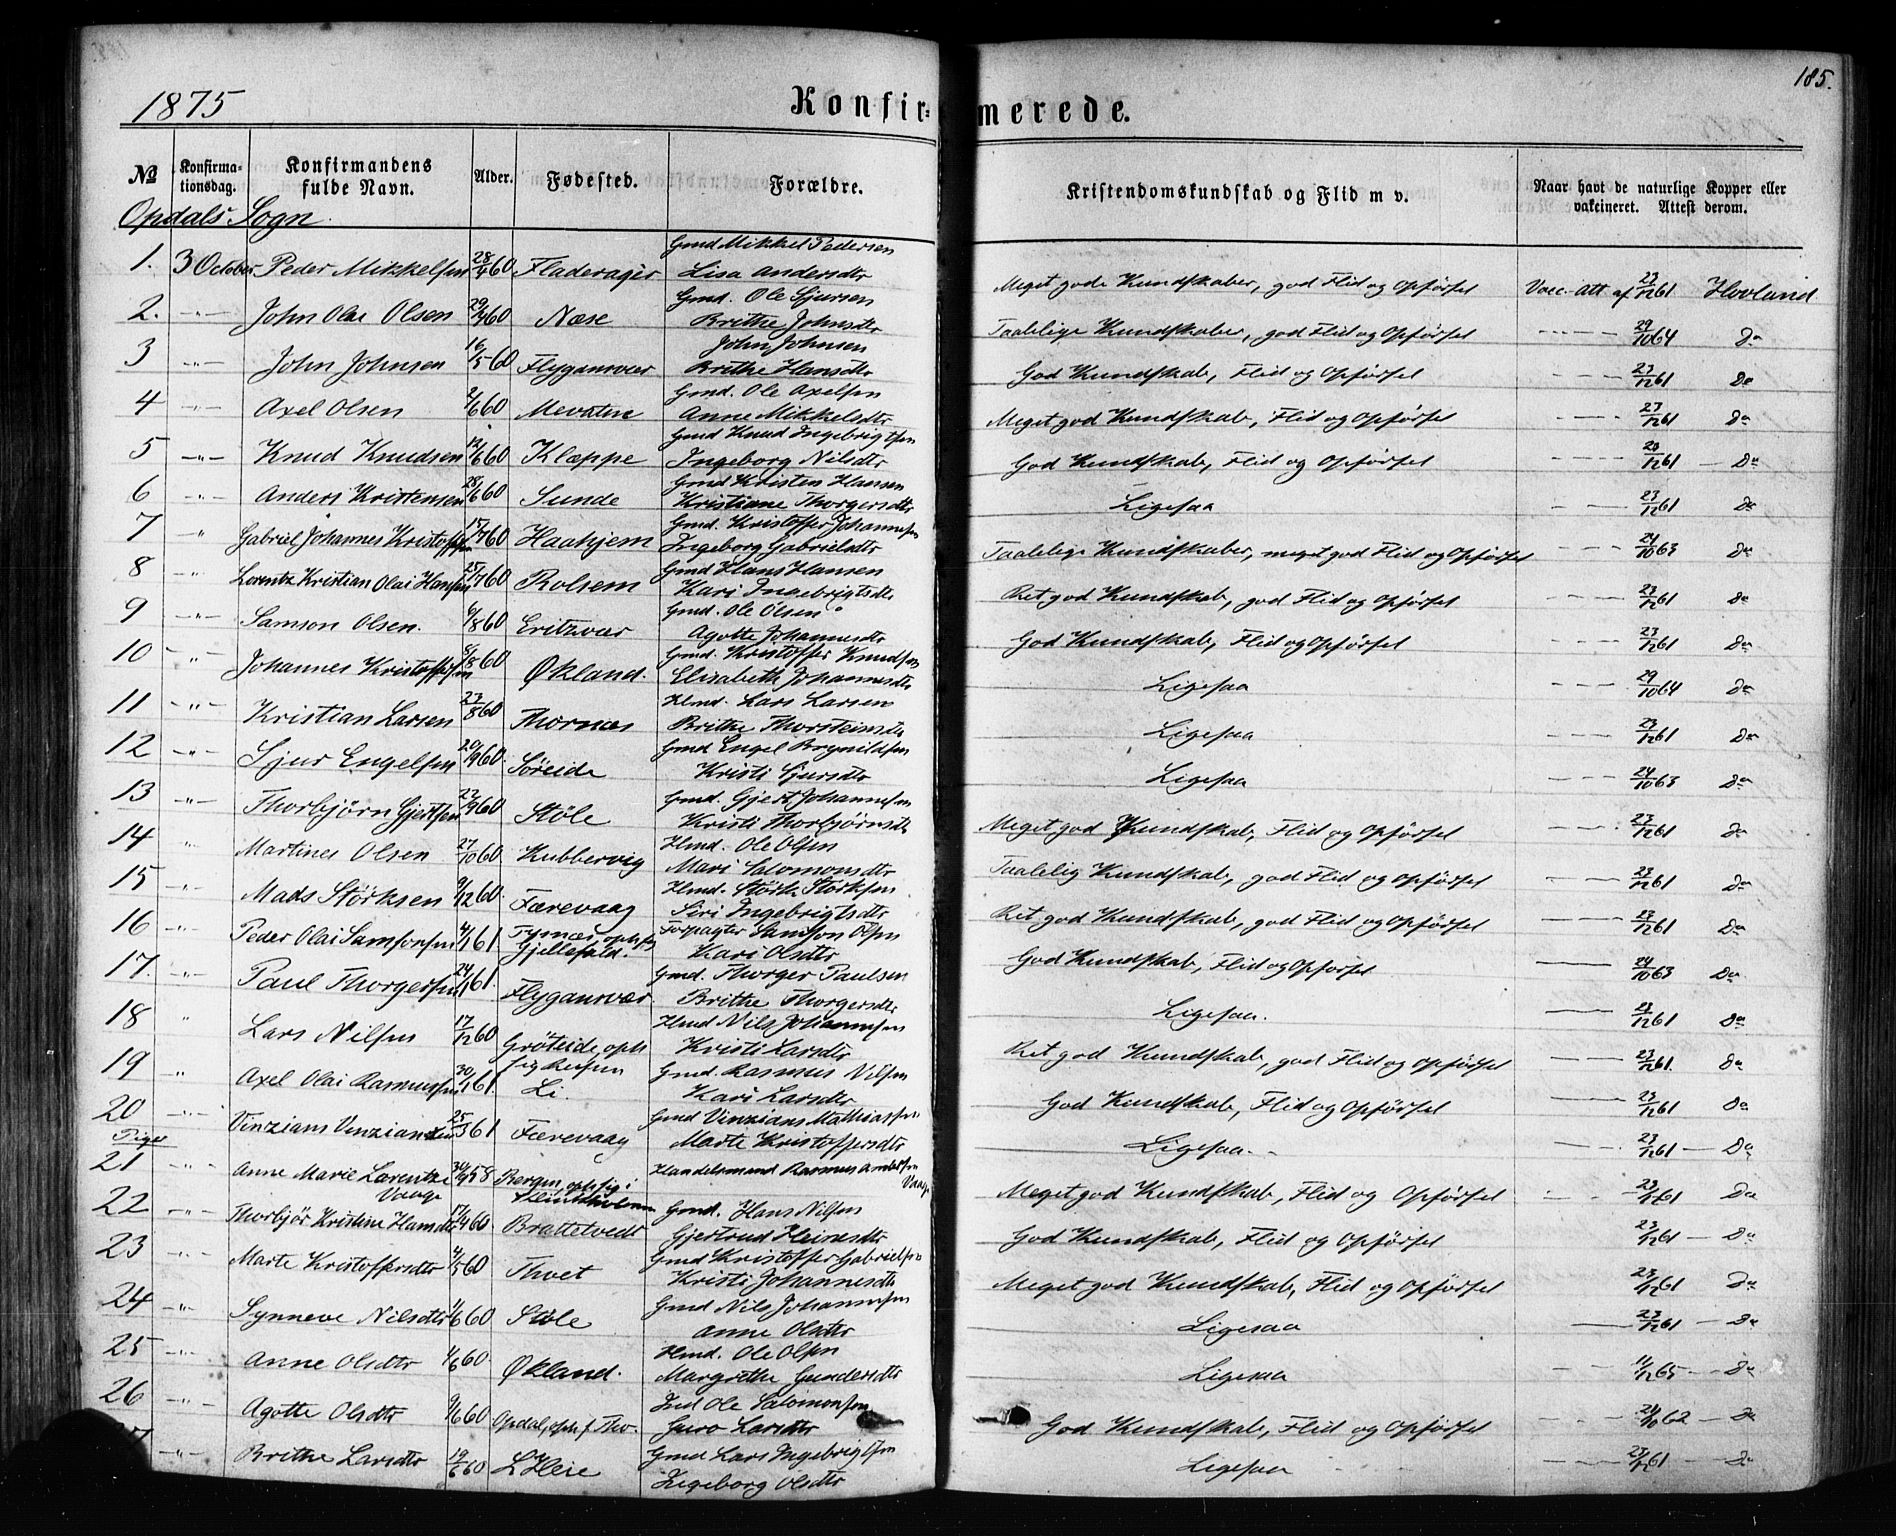 1875 Konfir= merede. 185.
№ Konfirma-tionsdag. Konfirmandens fulde Navn. Alder. Fødested. Forældre. Kristendomskundskab og Flid m v. Naar havt de naturlige Kopper eller vakcineret. Attest derom.
Opdals Sogn.
1. 3 October Peder Mikkelsen 28/4 60 Fladerager Gmd Mikkel Pedersen Lisa Andersdtr Meget gode Kundskaber, god Flid og Opførsel Vacc. Att af 23/12 61 Hovland
2. -"- John Olai Olsen 29/4 60 Næse Gmd. Ole Sjursen Brithe Johnsdtr Taalelige Kundskaber, god Flid og Opførsel 29/10 64 Do
3 -"- John Johnsen 16/5 60 Flygansvær John Johnsen Brithe Hansdtr God Kundskab, Flid og Opførsel 23/12 61 Do
4 -"- Axel Olsen 2/6 60 Mevatne Gmd. Ole Axelsen Anne Mikkelsdtr Meget god Kundskab, Flid og Opførsel 23/12 61 Do
5 -"- Knud Knudsen 12/6 60 Klæppe Gmd Knud Ingebrigtsen Ingeborg Nilsdtr God Kundskab, Flid og Opførsel 20/12 61 Do
6 -"- Anders Kristensen 28/6 60 Sunde Gmd Kristen Hansen Kristiane Thorgersdtr Ligesaa 23/12 61 Do
7 " Gabriel Johannes Kristoffersen 17/7 60 Haahjem Gmd. Kristoffer Johannesen Ingeborg Gabrielsdtr Taalelige Kundskaber, meget god Flid og Opførsel 24/10 63 Do
8 -"- Lorentz Kristian Olai Hansen 25/7 60 Rolsem Gmd Hans Hansen Kari Ingebrigtsdtr Ret god Kundskab, god Flid og Opførsel 23/12 61 Do
9 -"- Samson Olsen. 6/8 60 Eritzvær Gmd. Ole Olsen Agotte Johannesdtr God Kundskab, Flid og Opførsel 23/12 61 Do
10 -"- Johannes Kristoffersen 6/8 60 Økland. Gmd. Kristoffer Knudsen Elisabeth Johannesdtr Ligesaa 29/10 64 Do
11 -"- Kristian Larsen 23/8 60 Thornæs Hmd. Lars Larsen Brithe Thorsteinsdtr Ligesaa 23/12 61 Do
12 -"- Sjur Engelsen 20/9 60. Søreide Gmd Engel Brynildsen Kristi Sjursdtr Ligesaa 24/10 63 Do
13 -"- Thorbjørn Gjertsen 22/9 60 Støle Gmd. Gjert Johannesen Kristi Thorbjørnsdtr Meget god Kundskab, Flid og Opførsel 23/12 61 Do
14 " Martines Olsen 27/10 60 Kubbervig Hmd. Ole Olsen Mari Salomonsdtr Taalelig Kundskab, god Flid og Opførsel 23/12 61 Do
15 -"- Mads Størksen 9/12 60. Færevaag Hmd. Størk Størksen Siri Ingebrigtsdtr Ret god Kundskab, god Flid og Opførsel 23/12 61 Do
16 -"- Peder Olai Samsonsen 4/1 61 Tysnæs, Gjellefald. Forpagter Samson Olsen Kari Olsdtr God Kundskab, Flid og Opførsel 24/10 63 Do
17. -"- Paul Thorgersen 24/1 61. Flygansvær Gmd. Thorger Paulsen Brithe Thorgersdtr Ligesaa. 23/12 61 Do
18 " Lars Nilsen 17/12 60 Grøteide, oph Hmd Nils Johannesen Kristi Larsdtr Ret god Kundskab, god Flid og Opførsel 23/12 61. Do
19 " Axel Olai Rasmussen 30/1 61. Li. Gmd. Rasmus Nilsen Kari Larsdtr God Kundskab, Flid og Opførsel 23/12 61 Do
20 -"- Vinzians Vinziansen 25/3 61 Færevaag Gmd Vinzians Mathiassen Marte Kristoffersdtr Ligesaa. 23/12 61 Do
Piger
21 -"- Anne Marie Lorentze Vaage 58 Bergen, oph sig i Handelsmand Rasmus Andersen Vaage Meget god Kundskab, Flid og Opførsel 23/12 61 Do
22 -"- Thorbjør Kristine Hansdtr 60 Brattetvedt Gmd. Hans Nilsen Gjertrud Heinesdtr God Kundskab, Flid og Opførsel 23/12 61 Do
23 -"- Marte Kristoffersdtr 4/5 60 Thvet Gmd Kristoffer Gabrielsen Kristi Johannesdtr Meget god Kundskab, Flid og Opførsel 23/12 61 Do
24 -"- Synneve Nilsdtr 1/6 60 Støle Gmd Nils Johannesen Anne Olsdtr Ligesaa 23/12 61 Do
25 -"- Anne Olsdtr 4/6 60. Økland. Hmd. Ole Olsen Margrethe Gundersdtr Ligesaa 11/12 65 Do
26 -"- Agotte Olsdtr 9/6 60 Opdal, oph Ind Ole Salomonsen Guro Larsdtr God Kundskab, Flid og Opførsel 24/10 62 Do
7 -"- Brithe Larsdtr 19/6 60 LHeie Gmd Lars Ingebrigtsen Ingeborg Olsdtr Ligesaa 23/12 61 Do